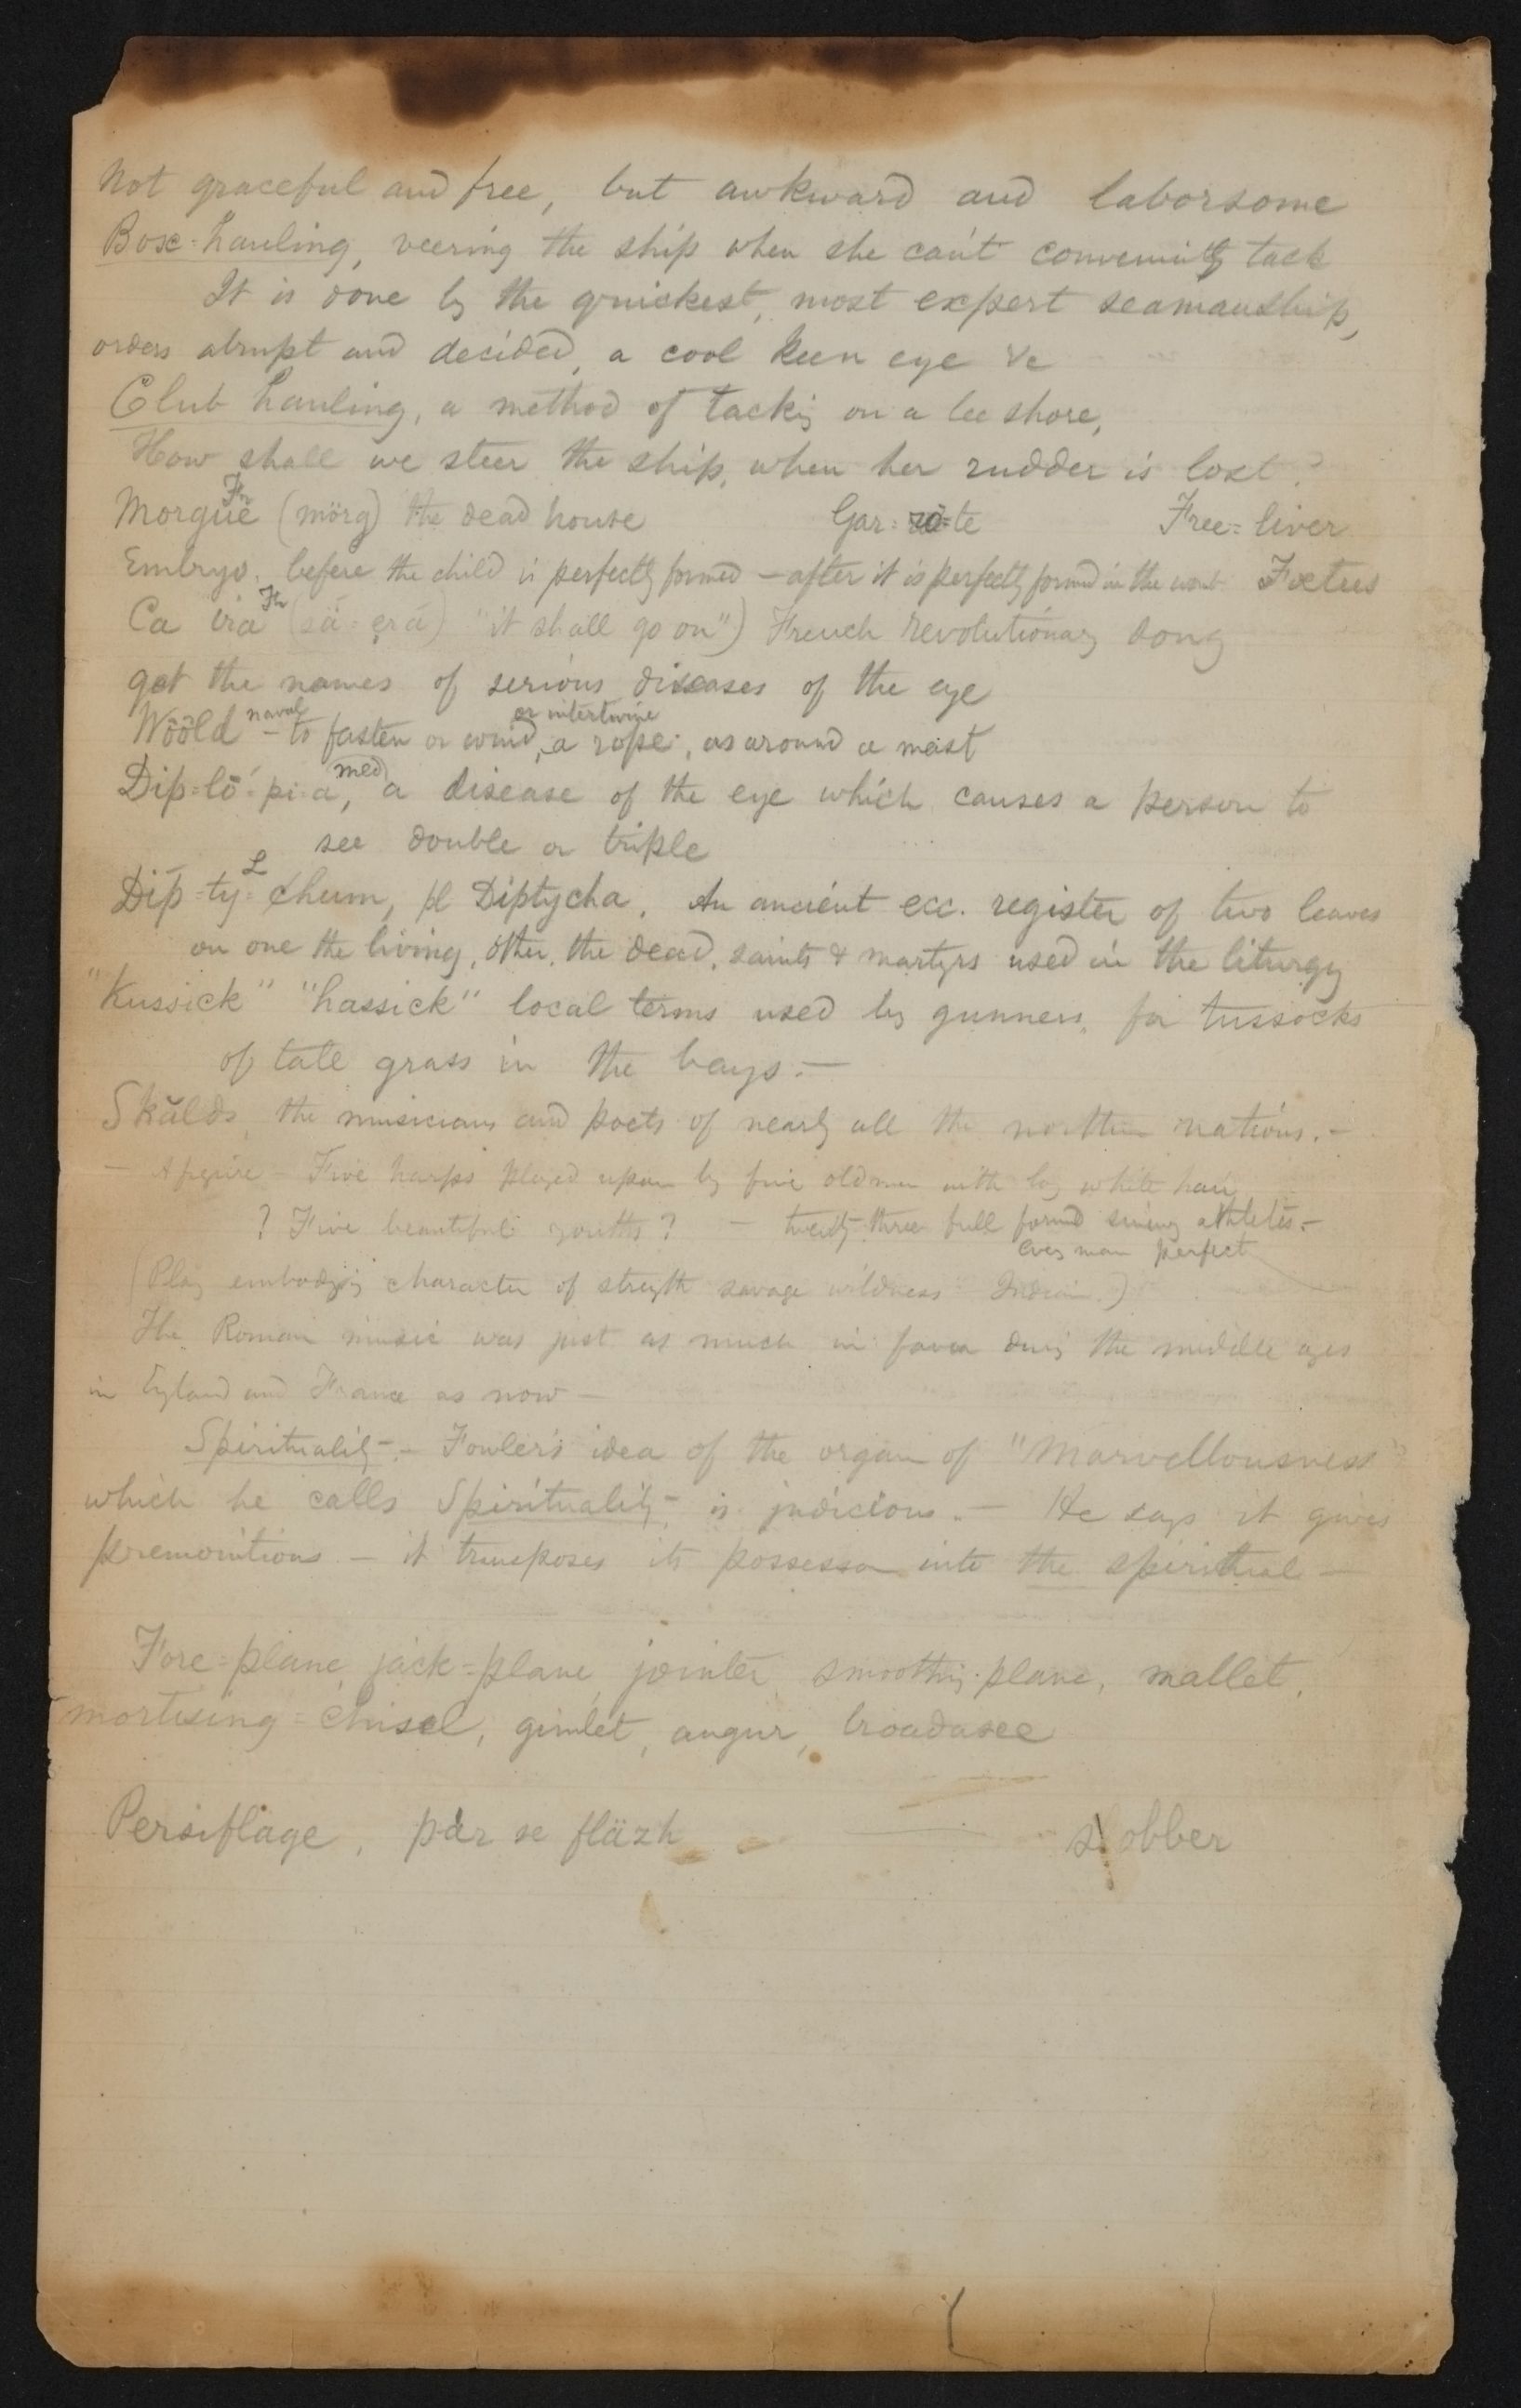 Not graceful and free, but awkward and laborsome
Box-hauling, veering the ship when she can't conveniently tack
It is done by the quickest, most expert seamanship,
orders abrupt and decided, a cool keen eye &c
Club hauling, a method of tacking on a lee shore,
How shall we steer the ship, when her rudder is lost?
Fr
Morgue (mörg) the dead house Gar=ro=te Free=liver
Embryo. before the child is perfectly formed — after it is perfectly formed in the womb Fœtus
Fr
Ca ira (sä=erä) "it shall go on") French revolutionary song
get the names of serious diseases of the eye
naval or intertwine
Woold — to fasten or wind, a rope, as around a mast
med
Dip=lō´=pi=a, a disease of the eye which causes a person to
see double or triple
L
Dip=ty=chum, pl Diptycha. An ancient ecc. register of two leaves
on one the living, other, the dead, saints & martyrs used in the liturgy
"Kussick" "hassick" local terms used by gunners, for tussocks
of tall grass in the bays.—
Skălds, the musicians and poets of nearly all the northern nations.—
— A figure — Five harps played upon by five old men with long white hair
? Five beautiful youths? — twenty-three full formed sinewy athletes.—
every man perfect
(Play embodying character of strength savage wildness Indian.)
The Roman music was just as much in favor during the middle ages
in England and France as now —
Spirituality.— Fowler's idea of the organ of "Marvellousness"
which he calls Spirituality is judicious.— He says it gives
premonitions — it transposes its possessor into the spiritual —
Fore=plane, jack=plane, jointer, smoothing-plane, mallet,
mortising=chisel, gimlet, augur, broadaxe
Persiflage, pär se fläzh slobber